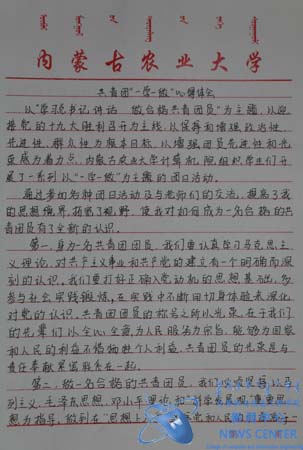 内蒙古农业大学
共青团“一学一做”心得体会
从“学习总书记讲话 做合格共青团员”为主题，以迎
接党的十九大胜利召开为主线，以保持和增强政治性、
先进性、群众性为根本目标，以增强团员先进性和光
荣感为着力点，内蒙古农业大学计算机 院组织学生们开
展了一系列以“一学一做”为主题的团日活动。
通过参加各种团日活动及与老师们的交流，提高了我
的思想境界，拓宽了视野，使我对如何成为一名合格的共
青团员有了全新的认识。
第一，身为一名共青团团员，我们要认真学习马克思主
义理论，对共产主义事业和共产党的建立有一个明确而深
刻的认识。我们要打好正确入党动机的思想基础，多
参与社会实践锻炼，在实践中不断用切身体验来深化
对党的认识。共青团团员的称号之所以光荣，在于我们
的先辈们以全心全意为人民服务为宗旨，能够为国家
和人民的利益不惜牺牲个人利益，共青团员的光荣是与
责任奉献紧密联系在一起。
第二，做一名合格的共青团员，我们必须坚持以马
列主义，毛泽东思想，邓小平理论和“科学发展观”重要思
想为指导，做到在“思想上
NEWS CENTER